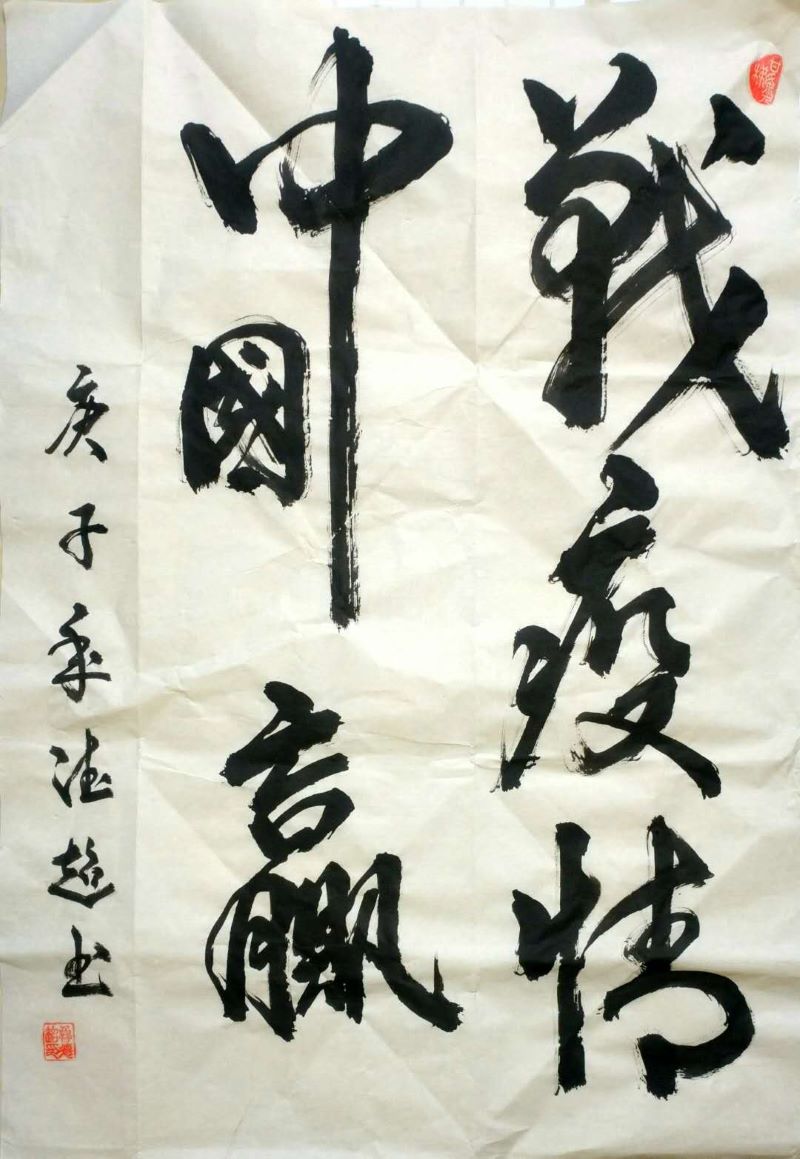 戰疫情
中國贏
庚子年德超书